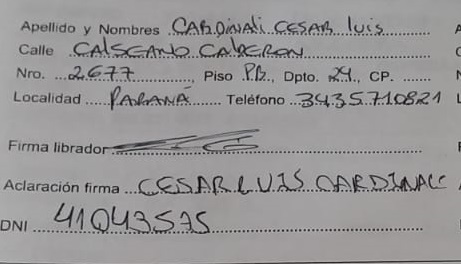 Apellido y Nombres CARDINALI CESAR luis
Calle CALSEANO CALDERON
Nro. 2677 Piso PB, Dpto. 24., CP.
Localidad PARANÁ Teléfono 3435710821
Firma librador
Aclaración firma CESAR LUIS CARDINALI
DNI 41043575